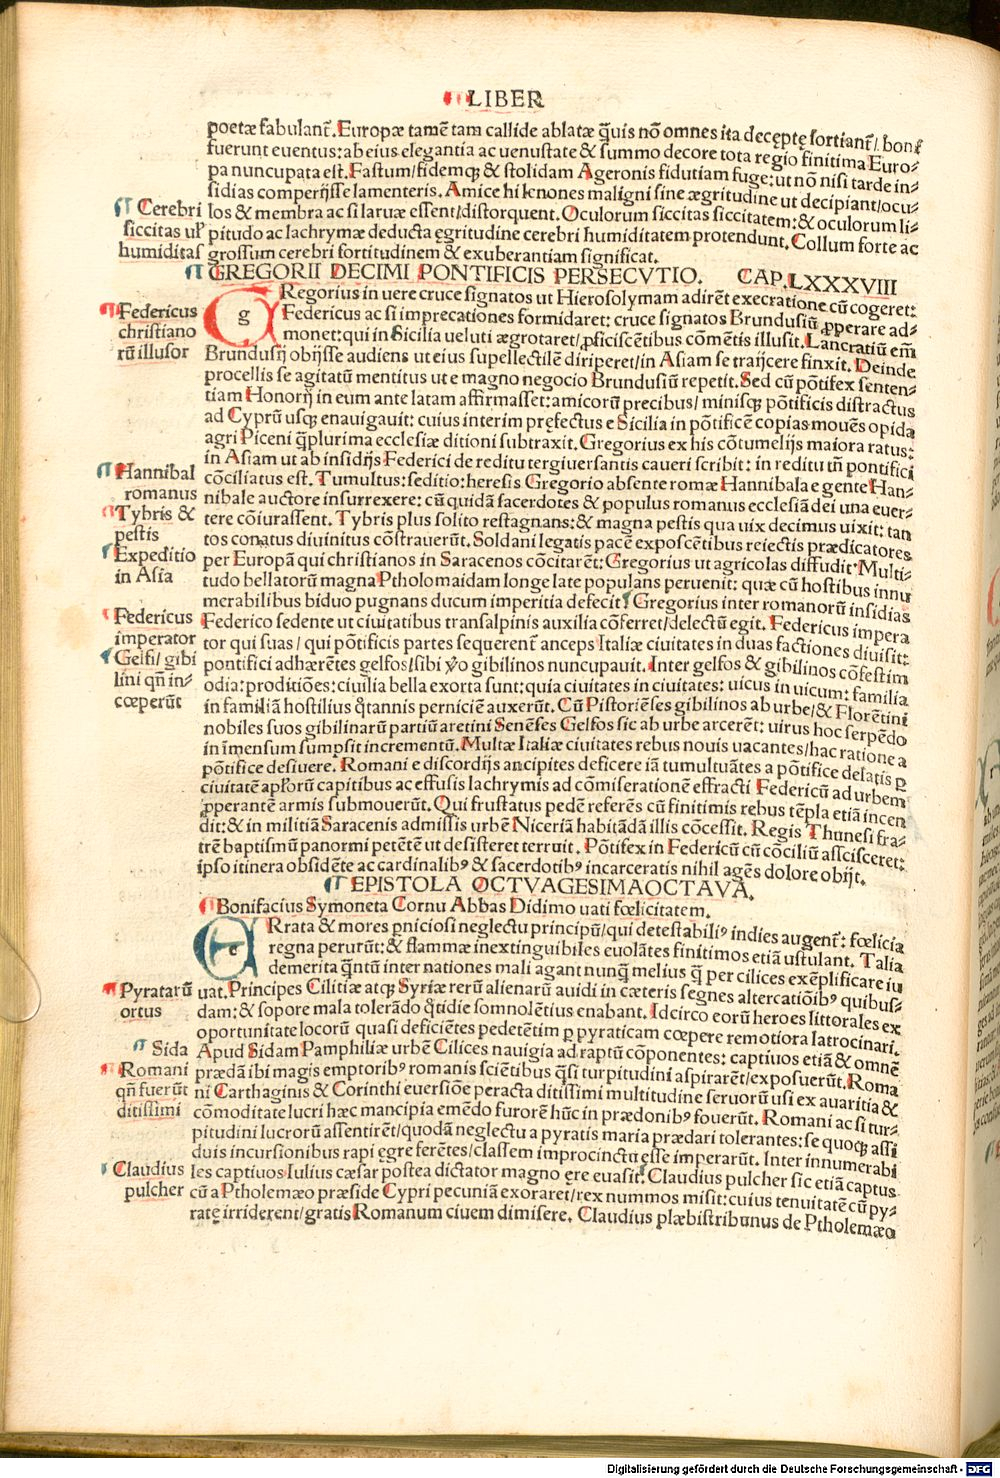 LIBER
poetæ fabulant̃. Europæ tamẽ tam callide ablatæ q̃uis nõ omnes ita deceptę sortiant̃/ bonę
fuerunt euentus: ab eius elegantia ac uenustate & summo decore tota regio finitima Euro-
pa nuncupata est. Fastum/ fidemq; & stolidam Ageronis fidutiam fuge: ut nõ nisi tarde in-
sidias comperijsse lamenteris. Amice hi lenones maligni sine ægritudine ut decipiant/ ocu-
los & membra ac si laruæ essent/ distorquent. Oculorum siccitas siccitatem: & oculorum li-
pitudo ac lachrymæ deducta ęgritudine cerebri humiditatem protendunt. Collum forte ac
grossum cerebri fortitudinem & exuberantiam significat.
Cerebri
siccitas uł
humiditas
¶ GREGORII DECIMI PONTIFICIS PERSECVTIO. CAP. LXXXVIII
g Regorius in uere cruce signatos ut Hierosolymam adirẽt execratione cũ cogeret:
Federicus ac si imprecationes formidaret: cruce signatos Brundusiũ ꝓperare ad-
monet: qui in Sicilia ueluti ægrotaret/ ꝓficiscẽtibus cõmẽtis illusit. Lancratiũ em̃
Brundusij obijsse audiens ut eius supellectilẽ diriperet/ in Asiam se traijcere finxit. Deinde
procellis se agitatũ mentitus ut e magno negocio Brundusiũ repetit. Sed cũ põtifex senten-
tiam Honorij in eum ante latam affirmasset: amicorũ precibus/ minisq; põtificis distractus
ad Cyprũ usq; enauigauit: cuius interim pręfectus e Sicilia in põtificẽ copias mouẽs opida
agri Piceni q̃plurima ecclesiæ ditioni subtraxit. Gregorius ex his cõtumelijs maiora ratus:
in Asiam ut ab insidijs Federici de reditu tergiuersantis caueri scribit: in reditu tñ pontifici
cõciliatus est. Tumultus: seditio: heresis Gregorio absente romæ Hannibala e gente Han-
nibale auctore insurrexere: cũ quidã sacerdotes & populus romanus ecclesiã dei una euer-
tere cõiurassent. Tybris plus solito restagnans: & magna pestis qua uix decimus uixit: tan
tos conatus diuinitus cõstrauerũt. Soldani legatis pacẽ exposcẽtibus reiectis prædicatores
per Europã qui christianos in Saracenos cõcitarẽt: Gregorius ut agricolas diffudit. Multi-
tudo bellatorũ magna Ptholomaidam longe late populans peruenit: quæ cũ hostibus innu
merabilibus biduo pugnans ducum imperitia defecit. Gregorius inter romanorũ insidias
Federico sedente ut ciuitatibus transalpinis auxilia cõferret/ delectũ egit. Federicus impera
tor qui suas/ qui põtificis partes sequerent̃ anceps Italiæ ciuitates in duas factiones diuisit:
pontifici adhærẽtes gelfos/ sibi ṽo gibilinos nuncupauit. Inter gelfos & gibilinos cõfestim
odia: proditiões: ciuilia bella exorta sunt: quia ciuitates in ciuitates: uicus in uicum: familia
in familiã hostilius q̃tannis perniciẽ auxerũt. Cũ Pistoriẽses gibilinos ab urbe/ & Florẽtini
nobiles suos gibilinarũ partiũ aretini Senẽses Gelfos sic ab urbe arcerẽt: uirus hoc serpẽdo
in ĩmensum sumpsit incrementũ. Multæ Italiæ ciuitates rebus nouis uacantes/ hac ratione a
põtifice desiuere. Romani e discordijs ancipites deficere iã tumultuãtes a põtifice delatis ꝑ
ciuitatẽ apłorũ capitibus ac effusis lachrymis ad cõmiserationẽ effracti Federicũ ad urbem
ꝓperantẽ armis submouerũt. Qui frustatus pedẽ referẽs cũ finitimis rebus tẽpla etiã incen
dit: & in militiã Saracenis admissis urbẽ Niceriã habitãdã illis cõcessit. Regis Thunesi fra-
trẽ baptismũ panormi petẽtẽ ut desisteret terruit. Põtifex in Federicũ cũ cõciliũ asscisceret:
ipso itinera obsidẽte ac cardinalibꝰ & sacerdotibꝰ incarceratis nihil agẽs dolore obijt.
Federicus
christiano
rũ illusor
Hannibal
romanus
Tybris &
pestis
Expeditio
in Asia
Federicus
imperator
Gelfi/ gibi
lini qñ in-
cœperũt
¶ EPISTOLA OCTVAGESIMAOCTAVA.
¶ Bonifacius Symoneta Cornu Abbas Didimo uati fœlicitatem.
e Rrata & mores ꝑniciosi neglectu principũ/ qui detestabiliꝰ indies augent̃: fœlicia
regna perurũt: & flammæ inextinguibiles euolãtes finitimos etiã ustulant. Talia
demerita q̃ntũ inter nationes mali agant nunq̃ melius q̃ per cilices exẽplificare iu
uat. Principes Cilitiæ atq; Syriæ rerũ alienarũ auidi in cæteris segnes altercatiõibꝰ quibus-
dam: & sopore mala tolerãdo q̃tidie somnolẽtius enabant. Idcirco eorũ heroes littorales ex
oportunitate locorũ quasi deficiẽtes pedetẽtim ꝑ pyraticam cœpere remotiora latrocinari.
Apud Sidam Pamphiliæ urbẽ Cilices nauigia ad raptũ cõponentes: captiuos etiã & omnẽ
prædã ibi magis emptoribꝰ romanis sciẽtibus q̃si turpitudini aspirarẽt/ exposuerũt. Roma
ni Carthaginis & Corinthi euersiõe peracta ditissimi multitudine seruorũ usi ex auaritia &
cõmoditate lucri hæc mancipia emẽdo furorẽ hũc in prædonibꝰ fouerũt. Romani ac si tur-
pitudini lucrorũ assentirẽt/ quodã neglectu a pyratis maria prædari tolerantes: se quoq; assi
duis incursionibus rapi ęgre ferẽtes/ classem improcinctu esse imperarũt. Inter innumerabi
les captiuos Iulius cæsar postea dictator magno ęre euasit. Claudius pulcher sic etiã captus
cũ a Ptholemæo præside Cypri pecuniã exoraret/ rex nummos misit: cuius tenuitatẽ cũ py-
ratę irriderent/ gratis Romanum ciuem dimisere. Claudius plæbistribunus de Ptholemæo
Pyratarũ
ortus
Sida
Romani
qñ fuerũt
ditissimi
Claudius
pulcher
Digitalisierung gefördert durch die Deutsche Forschungsgemeinschaft - DFG